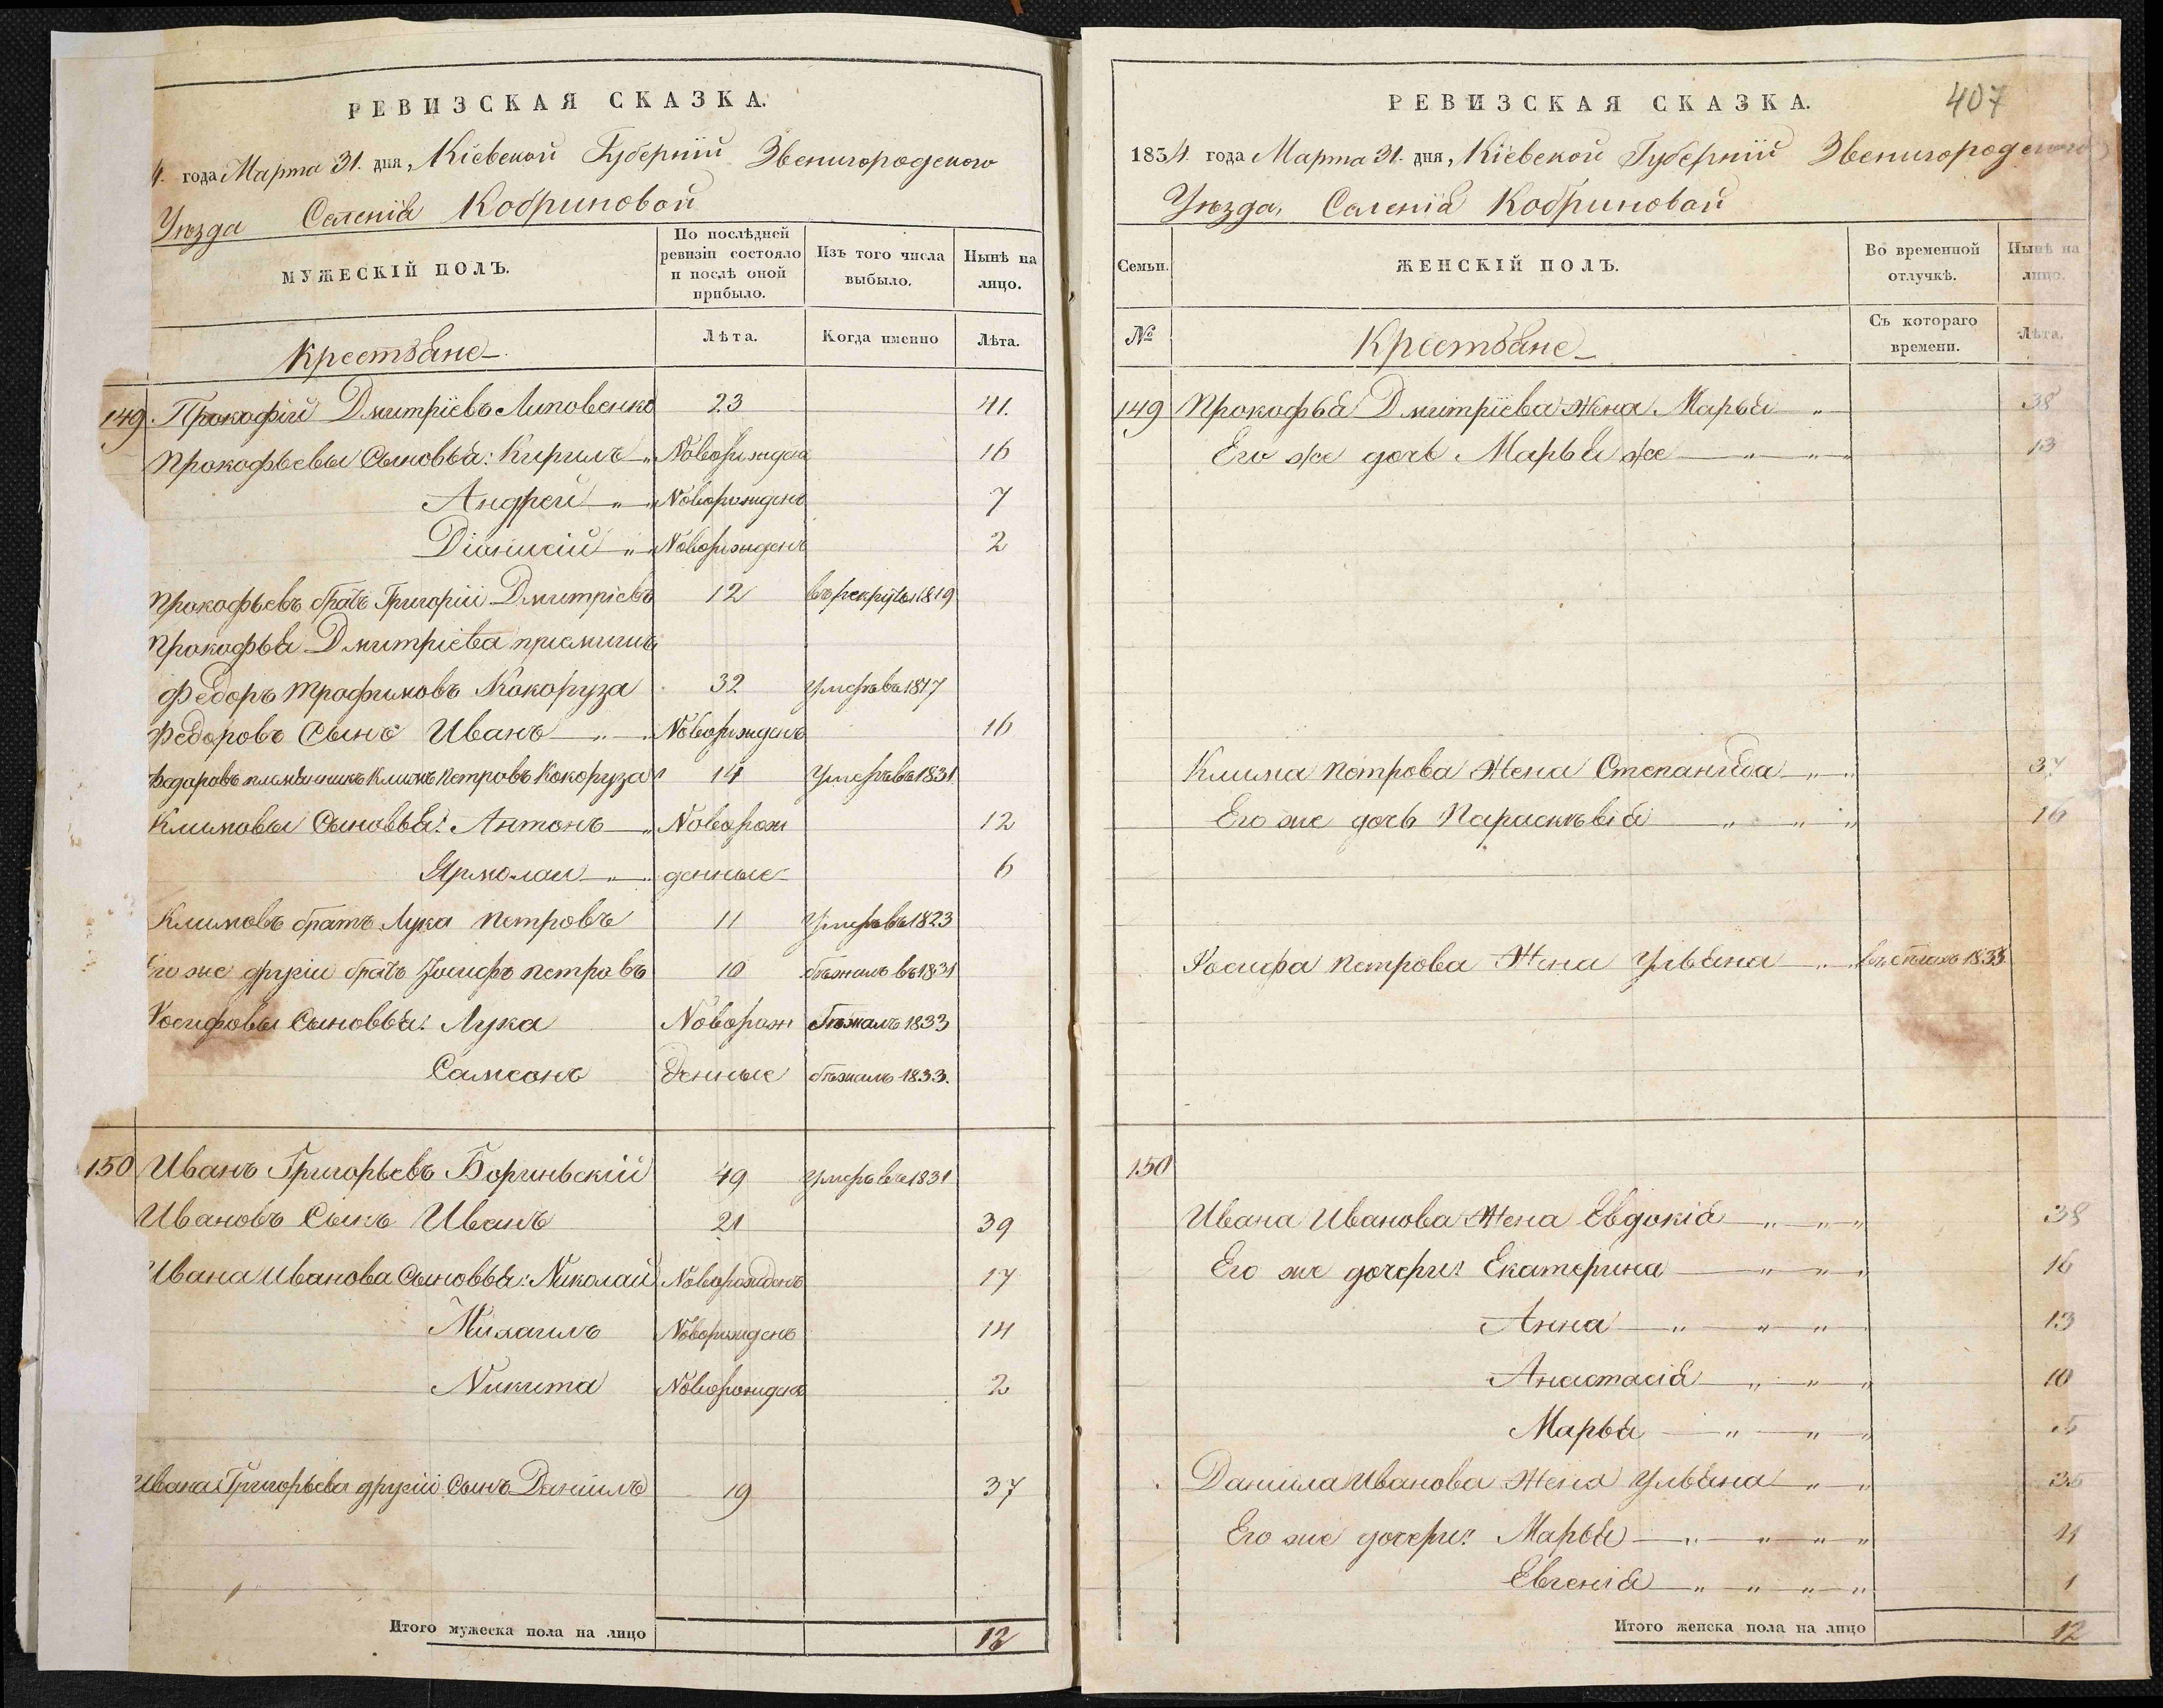 РЕВИЗСКАЯ СКАЗКА.
4. года Марта 31. дня, Кіевской Губерніи Звенигородского
Уѣзда Селенія Кобриновой
МУЖЕСКІЙ ПОЛЪ.
По послѣдней ревизіи состояло и послѣ оной прибыло.
Изъ того числа выбыло.
Нынѣ на лицо.
Крестьяне
Лѣта.
Когда именно
Лѣта.
149. Прокофій Дмитріевъ Липовенко 23 41.
Прокофьевы Сыновья: Кирилъ „ Новорожденъ 16
Андрей „ „ Новорожденъ 7
Діонисій „ Новорожденъ 2
Прокофьевъ братъ Григорій Дмитріевъ 12 въ рекруты 1819
Прокофья Дмитріева приемишъ
Федоръ Трофимовъ Кокоруза 32 Умеръ въ 1817
Федоровъ Сынъ Иванъ „ Новорожденъ 16
Федоровъ племянникъ Климъ Петровъ Кокоруза 14 Умеръ въ 1831
Климовы Сыновья: Антонъ „ Новорож 12
Ярмолай „ денные 6
Климовъ братъ Лука Петровъ 11 Умеръ въ 1823
Его же другій братъ Іосифъ Петровъ 10 бѣжалъ въ 1831
Іосифовы Сыновья: Лука Новорож бѣжалъ 1833
Самсонъ денные бѣжалъ 1833.
150 Иванъ Григорьевъ Бориньскій 49 Умеръ въ 1831
Ивановъ Сынъ Иванъ 21 39
Ивана Иванова Сыновья: Николай Новорожденъ 17
Михаилъ Новорожденъ 14
Никита Новорожденъ 2
Ивана Григорьева другій Сынъ Даніилъ 19 37
Итого мужеска пола на лицо 12
407
РЕВИЗСКАЯ СКАЗКА.
1834. года Марта 31. дня, Кіевской Губерніи Звенигородского
Уѣзда, Селенія Кобриновой
Семьи.
ЖЕНСКІЙ ПОЛЪ.
Во временной отлучкѣ.
Нынѣ на лицо.
№
Крестьяне
Съ котораго времени.
Лѣта.
149 Прокофья Дмитріева Жена Марья „ 38
Его же дочь Марья же „ „ „ 13
Клима Петрова Жена Степанида „ „ 37
Его же дочь Параскѣвія „ „ „ 16
Іосифа Петрова Жена Ульяна „ „ 1833
150
Ивана Иванова Жена Евдокія „ „ „ 38
Его же дочери: Екатерина „ „ „ 16
Анна „ „ „ 13
Анастасія „ „ „ 10
Марья „ „ „ 5
Даніила Иванова Жена Ульяна „ „ 35
Его же дочери: Марья „ „ „ „ 4
Евгенія „ „ „ „ 1
Итого женска пола на лицо 12